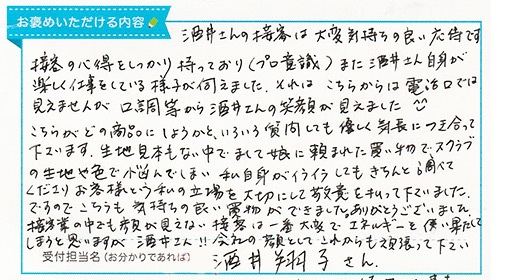 お褒めいただける内容
酒井さんの接客は大変気持ちの良い応待です
接客の心得をしっかり持っており(プロ意識)また酒井さん自身が
楽しく仕事をしている様子が伺えました。それは こちらからは電話口では
見えませんが 口調等から酒井さんの笑顔が見えました
こちらがどの商品にしようかと、いろいろ質問しても優しく気長につき合って
下さいます。生地見本もない中でまして娘に頼まれた買い物でスクラブ
の生地や色で悩んでしまい 私自身がイライラしてもきちんと調べて
くださりお客様という私の立場を大切にして敬意を払って下さいました。
ですのでこちらも気持ちの良い買物ができました。ありがとうございました。
接客業の中でも顔が見えない接客は一番大変でエネルギーを使い果たして
しまうと思いますが 酒井さん!!会社の顔としてこれからも頑張って下さい
受付担当名(お分かりであれば)
酒井 さん